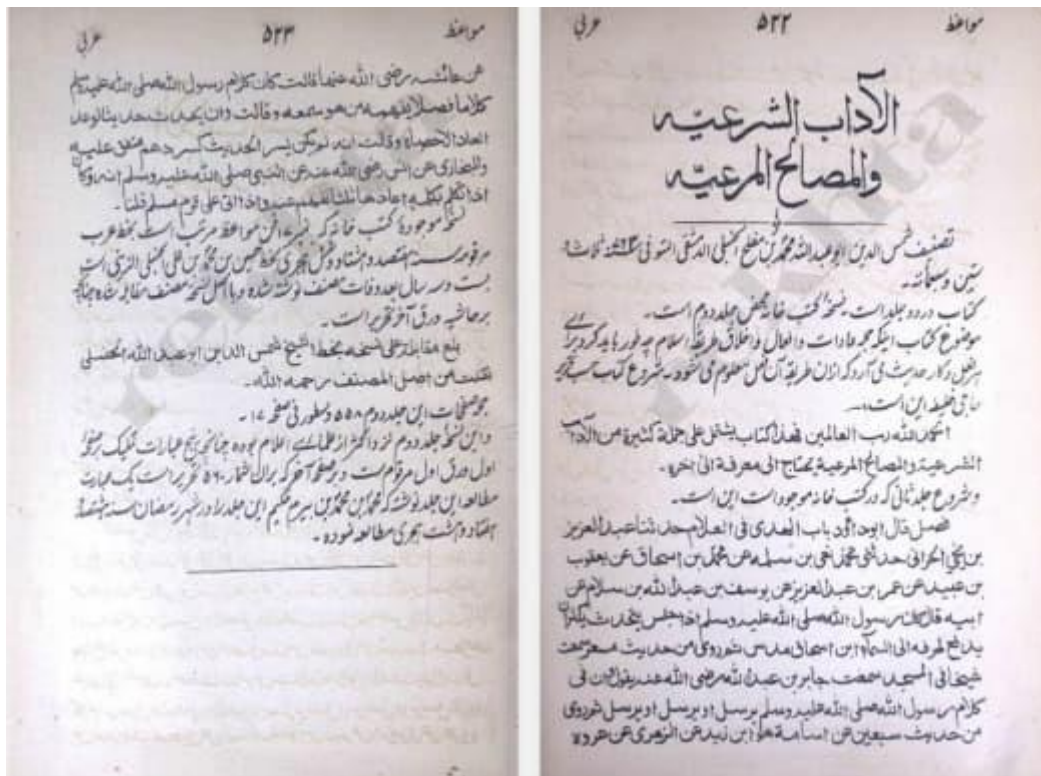 مواعظ ۵۲۲ عربی
الآداب الشرعیہ
والمصالح المرعیہ
تصنیف شمس الدین ابو عبد اللہ محمد بن مفلح الحنبلی الدمشقی المتوفی ثلاث و
ستین و سبعمائة۔
کتاب در دو جلد است۔ نسخۂ کتب خانہ محض جلد دوم است۔
موضوع کتاب اینکہ عادات و افعال و اخلاق طریقۂ اسلام چہ طور باید کرد برائے
ہر فعل و کار حدیث می آرد کہ ازان طریقۂ آن فعل معلوم می شود۔ شروع کتاب
حاجی خلیفہ این است۔
الحمد للہ رب العالمین فهذا کتاب یشتمل علی جملة کثیرة من الآداب
الشرعیة والمصالح المرعیة یحتاج الی معرفة الی اخره۔
و شروع جلد ثانی کہ در کتب خانہ موجود است این است۔
فصل قال ابوداؤد باب الهدی فی الکلام حدثنا عبد العزیز
بن یحیی الحرانی حدثنی محمد یعنی بن سلمه عن محمد بن اسحاق عن یعقوب
بن عبید عن عمر بن عبد العزیز عن یوسف بن عبد اللہ بن سلام عن
ابیه قال کان رسول اللہ صلی اللہ علیه وسلم اذا جلس یتحدث یکثر ان
یدفع طرفه الی السماء ابن اسحاق مدلس ثم روی من حدیث مسعر سمعت
شیخا فی المسجد سمعت جابر بن عبد اللہ رضی اللہ عنه یقول کان فی
کلام رسول اللہ صلی اللہ علیه وسلم ترسل او ترسیل ثم روی
من حدیث سفین عن اسامة هو ابن زید عن الزهری عن عروة
مواعظ ۵۲۳ عربی
عن عائشه رضی اللہ عنها قالت کان کلام رسول اللہ صلی اللہ علیه وسلم
کلاما فصلا یفهمه من هو سمعه و قالت و ان یحدث حدیثا لو عد
العاد لاحصاه و قالت انه لم یکن یسر الحدیث کسر دهم متفق علیه
والبخاری عن انس رضی اللہ عنه عن النبی صلی اللہ علیه وسلم انه کان
اذا تکلم بکلمة اعادها ثلاثا لتفهم عنه و اذا اتی علی قوم سلم ثلثا۔
نسخۂ موجودۂ کتب خانہ کہ بر فن مواعظ مرتب است بخط عرب
مرقومہ سنہ ہفتصد و ہشتاد و شش ہجری بخط حسن بن محمد بن علی الحنبلی است
بست و سہ سال بعد وفات مصنف نوشتہ شدہ و با اصل نسخۂ مصنف مقابلہ شدہ چنانچہ
بر حاشیہ ورق آخر تحریر است۔
بلغ مقابلة علی نسخه بخط الشیخ شمس الدین ابو عبد اللہ الحنبلی
نقلت من اصل المصنف رحمه اللہ۔
جملہ صفحات این جلد دوم ۵۵۸ و سطور فی صفحہ ۱۷۔
و این نسخہ جلد دوم نزد اکثر از علمائے اعلام بودہ چنانچہ پنج عبارات تملیک بر صفحۂ
اول ورق اول مرقوم ست و بر صفحۂ آخر کہ بران شمار ۵۶۰ تحریر است یک عبارت
مطالعہ این جلد نوشتہ کہ محمد بن محمد بن بیرم حکیم این جلد را در شہر رمضان سنہ ہشتصد و
ہفتاد و ہشت ہجری مطالعہ نمودہ۔